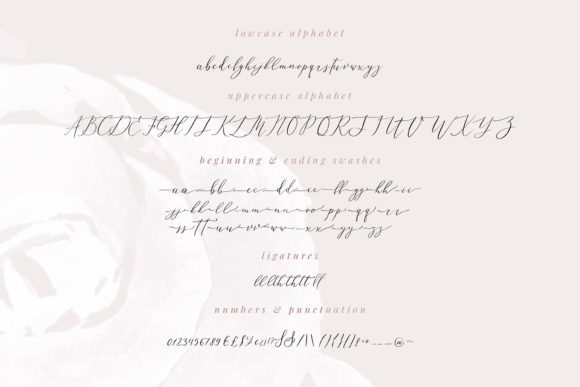 lowcase alphabet
abcdefghijklmnopqrstuvwxyz
uppercase alphabet
ABCDEFGHIJKLMNOPQRSTUVWXYZ
beginning & ending swashes
aa bb cc dd ee ff gg hh ii
jj kk ll mm nn oo pp qq rr
ss tt uu vv ww xx yy zz
ligatures
numbers & punctuation
0123456789